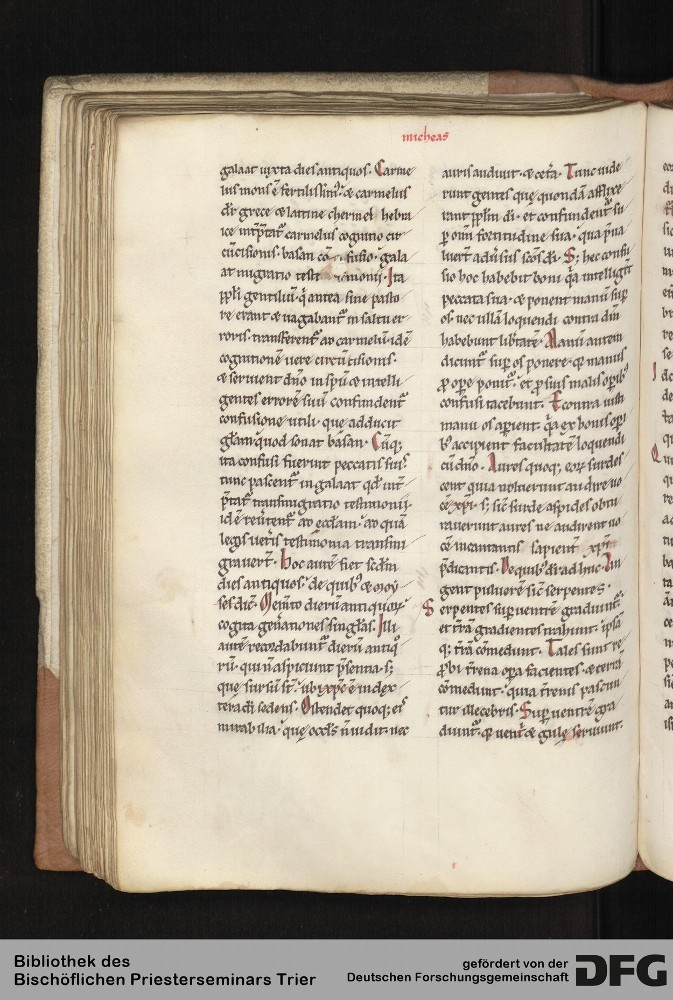 micheas
galaat iuxta dies antiquos. Carme
lus mons ē fertilissim⁹. & carmelus
dr̄ grece & latine chermel hebra
ice int̄p̄tat᷑ carmelus cognitio cir
cūcisionis. basan fusio. gala
at migratio testi monii. Ita
pp̄li gentiliū. q̇ antea sine pasto
re erant & vagabant᷑ in saltu er
roris. transferent᷑ ad carmelū. idē
cognitionē uere circūcisionis.
& seruient dn̄o in sp̄u & intelli
gentes errorē suū confundent᷑
confusione utili. que adducit
gl̄am. quod sonat basan. Cūq;
ita confusi fuerint peccatis suis
tunc pascent᷑ in galaat qd̄ int̄
p̄tat᷑ transmigratio testimonii.
id ē reūtent᷑ ad eccl̄am. ad quā
legis uet̄is testimonia transmi
grauer̄t. Hoc autē fiet scd̄m
dies antiquos. de quib⁹ & moy
ses dic̄. Mem̄to dierū antiquoꝝ
cogita gen̄ationes singl̄as. Illi
autē recordabunt᷑ dierū antiq̇
rū. qui n̄ aspiciunt p̄sentia. s;
que sursū s̄t. ubi xp̄c ē in dex
tera dī sedens. Ostendet quoq; eis
mirabilia. que ocl̄s n̄ uidit. nec
auris audiuit. & cet̄a. Tunc uide
runt gentes que quondā afflixe
rant pp̄lm dī. et confundent᷑ su
ꝑ om̄i fortitudine sua. qua p̄ua
luer̄t adūsus scōs dī. S; hec confu
sio hoc habebit boni q̇a intelligēt
peccata sua. & ponent manū sup̄
os. nec ullā loquendi contra dm̄
habebunt lib̄tatē. Manū autem
dicunt᷑ sup̄ os ponere. q̇ manus
ꝓ oꝑe ponit᷑. et ꝓ suis malis oꝑib⁹
confusi tacebunt. Econtra iusti
manu os aꝑient. q̇a ex bonis oꝑi
b⁹ accipient facultatē loquendi
cū dn̄o. Aures quoq; eoꝝ surdes
cent quia noluerunt audire uo
cē xp̄i. s; sic̄ surde aspides obtu
rauerunt aures ne audirent uo
cē incantantis sapient᷑ xp̄m
p̄dicantis. De quib⁹ dr̄ adhuc. Lin
gent puluerē sic̄ serpentes.
Serpentes sup̄ uentrē gradiunt᷑.
et t̄rā gradientes trahunt. ipsā
q; t̄rā comedunt. Tales sunt re
ꝓbi t̄rena oꝑa facientes. & t̄rena
comedunt. quia t̄renis pascun
tur illecebris. Sup̄ uentrē gra
diunt᷑. q̇ uent̄i & gulę seruiunt.
Bibliothek des
Bischöflichen Priesterseminars Trier
gefördert von der
Deutschen Forschungsgemeinschaft
DFG